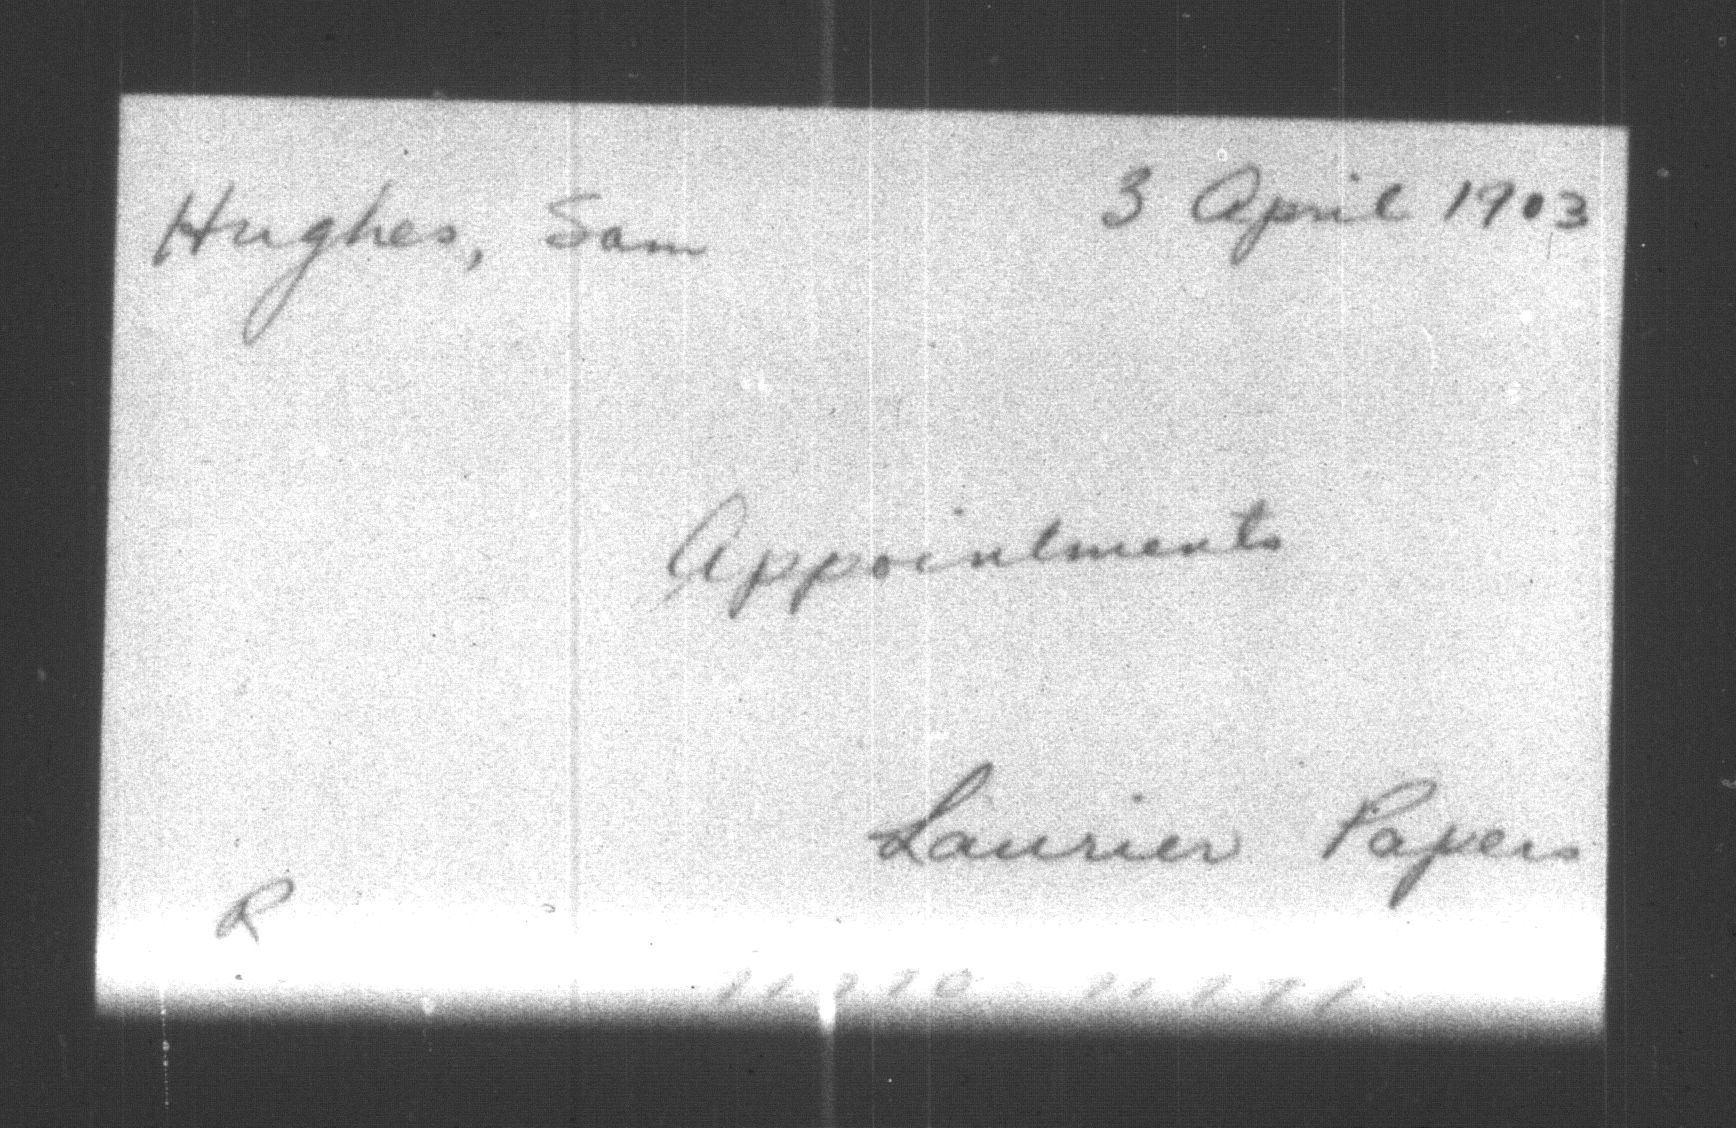 Hughes, Sam 3 April 1903
Appointments
Laurier Papers
R